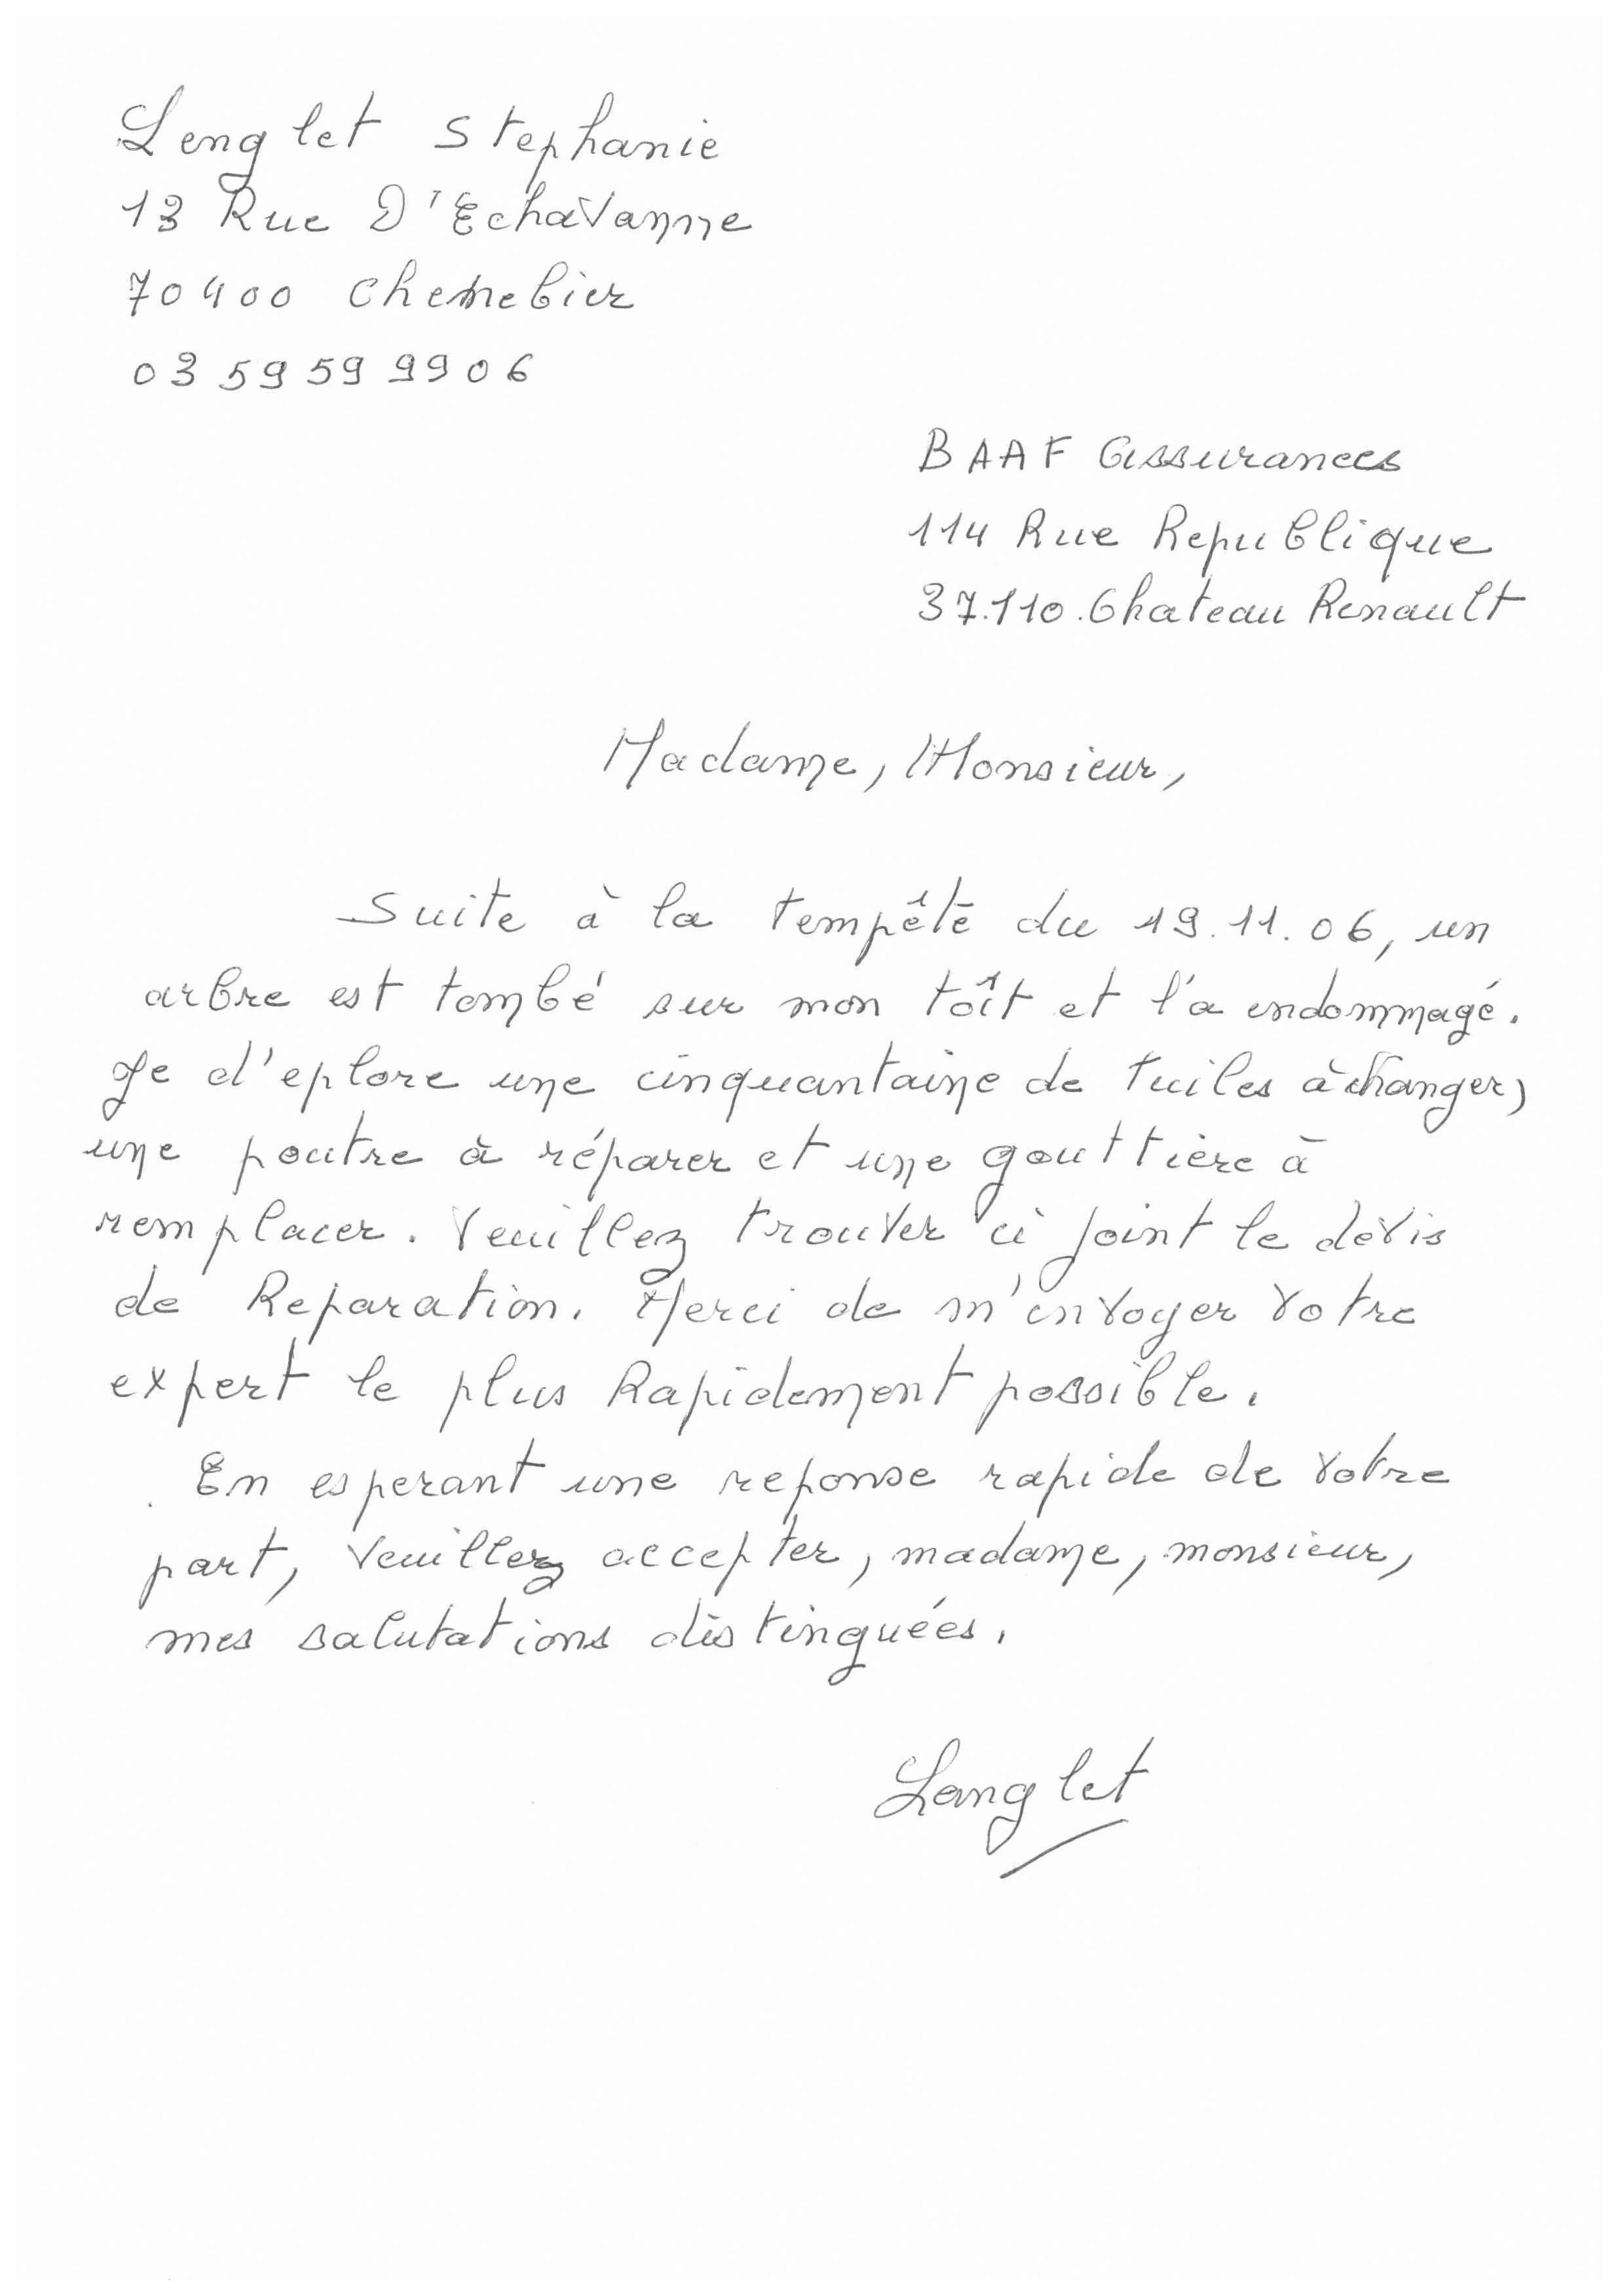 Lenglet Stephanie
13 Rue D'Echavanne
70400 Chenebier
03 59 59 99 06
BAAF Assurances
114 Rue Republique
37.110.Chateau Renault
Madame, Monsieur,
Suite à la tempête du 19.11.06, un
arbre est tombé sur mon toît et l'a endommagé.
Je d'eplore une cinquantaine de tuiles à changer,
une poutre à réparer et une gouttière à
remplacer. Veuillez trouver ci joint le dévis
de Reparation. Merci de m'envoyer votre
expert le plus Rapidement possible.
En esperant une reponse rapide de votre
part, veuillez accepter, madame, monsieur,
mes salutations distinguées.
Lenglet